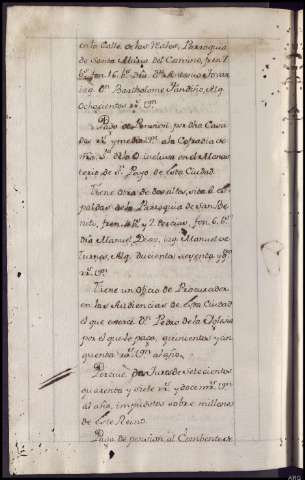 en la Calle de los Ratos, Parroquia
de Santa Maria del Camino, fren. 7
fon. 16. dra. Dn. Antonio
izq. Dn. Bartholome Pardiño, Alq.
ochocientos rs. Vn.
Paga de Pension, por dha Casa
dos rs. y medio Vn. a la Cofradia de
Sra. de la O inclusa en el Monas
terio de Sn. Payo de esta Ciudad.
Tiene otra de dos altos, sita es
paldas de la Parroquia de San Be
nito, fren. y 2 tercias, fon. 6.
dra. Manuel Dias, izq. Manuel de
Turnes, Alq. ducientos setenta y
rs. Vn.
Tiene un Oficio de Procurador
en las Audiencias de esta Ciudad
el que exerce Dn. Pedro de la Iglesia
por el que le paga, quinientos y cin
quenta rs. Vn. al año.
Percive Juros de setecientos
quarenta y siete rs. y doce mrs. Vn.
al año, impuestos sobre millones
de este Reino.
Paga de pension al Combento de